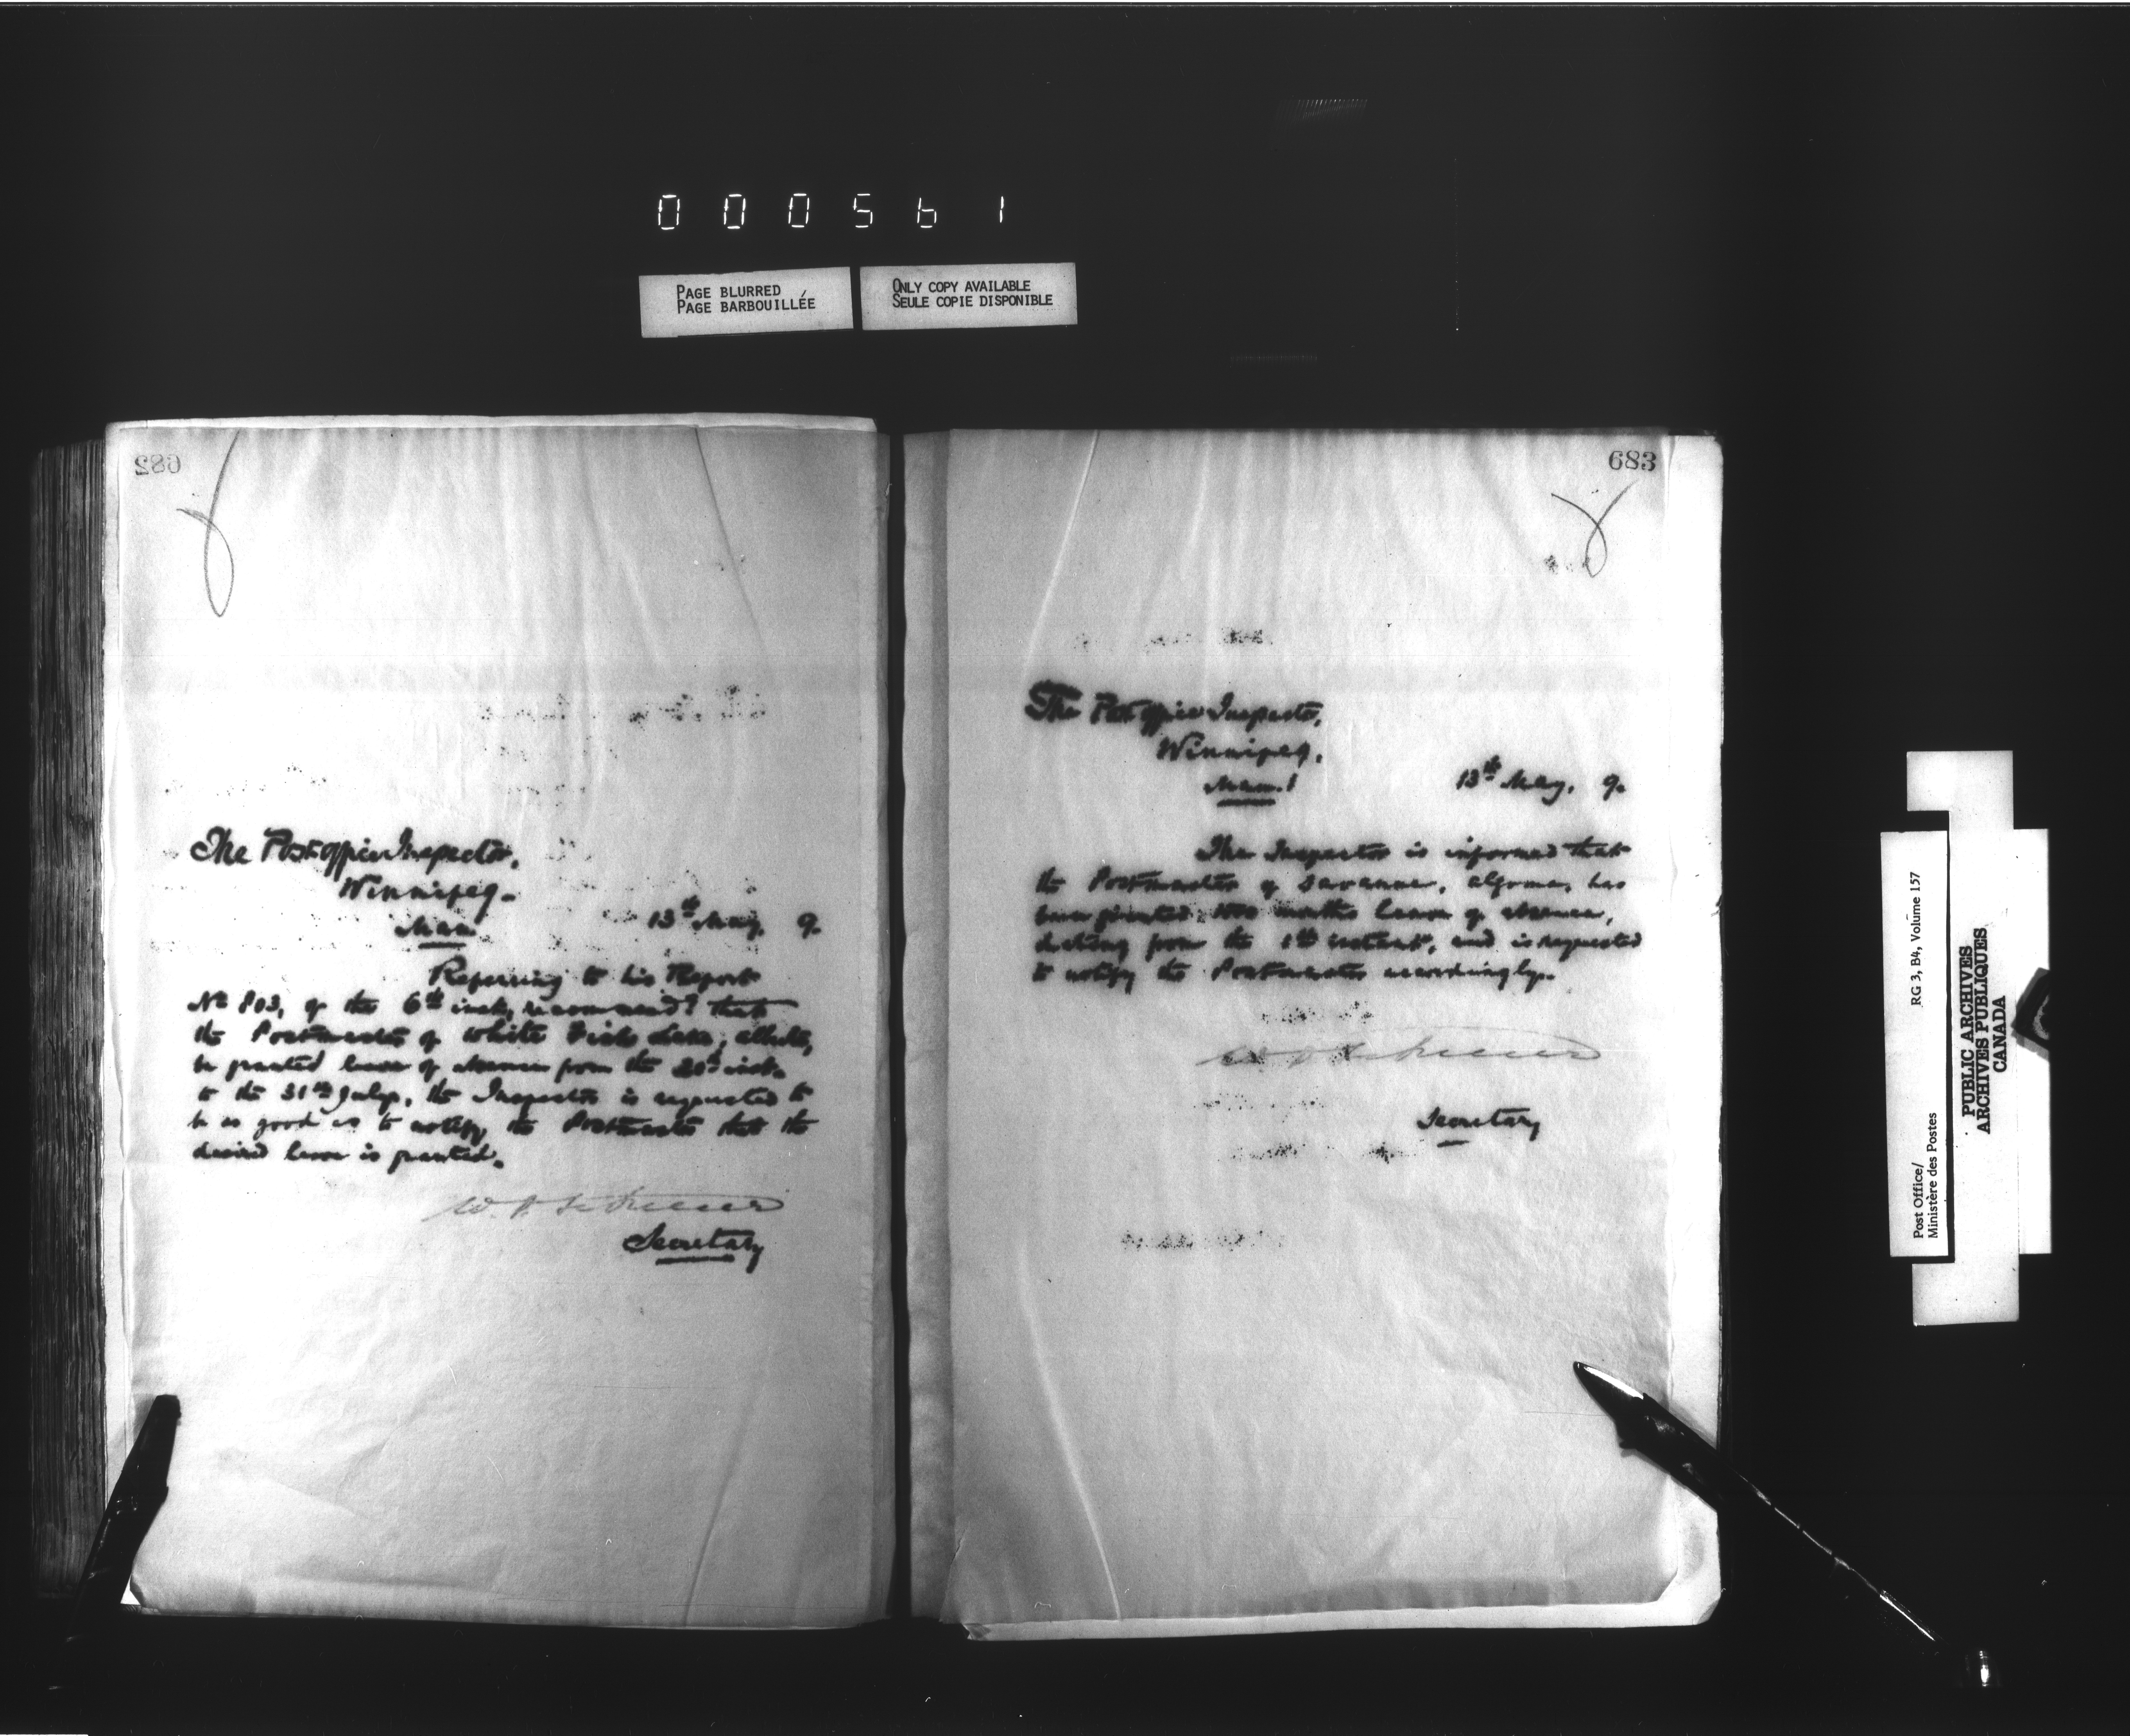 000561
PAGE BLURRED
PAGE BARBOUILLÉE
ONLY COPY AVAILABLE
SEULE COPIE DISPONIBLE
682
The Post Office Inspector,
Winnipeg.
Man.
13th May, 9.
Referring to his Report
No 803, of the 6th inst, recommend? that
the Postmaster of White Fish Lake, Alberta,
be granted leave of absence from the 20th inst.
to the 31st July, the Inspector is requested to
be so good as to notify the Postmaster that the
desired leave is granted.
Secretary
683
The Post Office Inspector,
Winnipeg,
Man.
13th May, 9.
The Inspector is informed that
the Postmaster of Savanne, Algoma, has
been granted two months leave of absence,
dating from the instant, and is requested
to notify the Postmaster accordingly.
Secretary
Post Office/
Ministère des Postes
RG 3, B4, Volume 157
PUBLIC ARCHIVES
ARCHIVES PUBLIQUES
CANADA